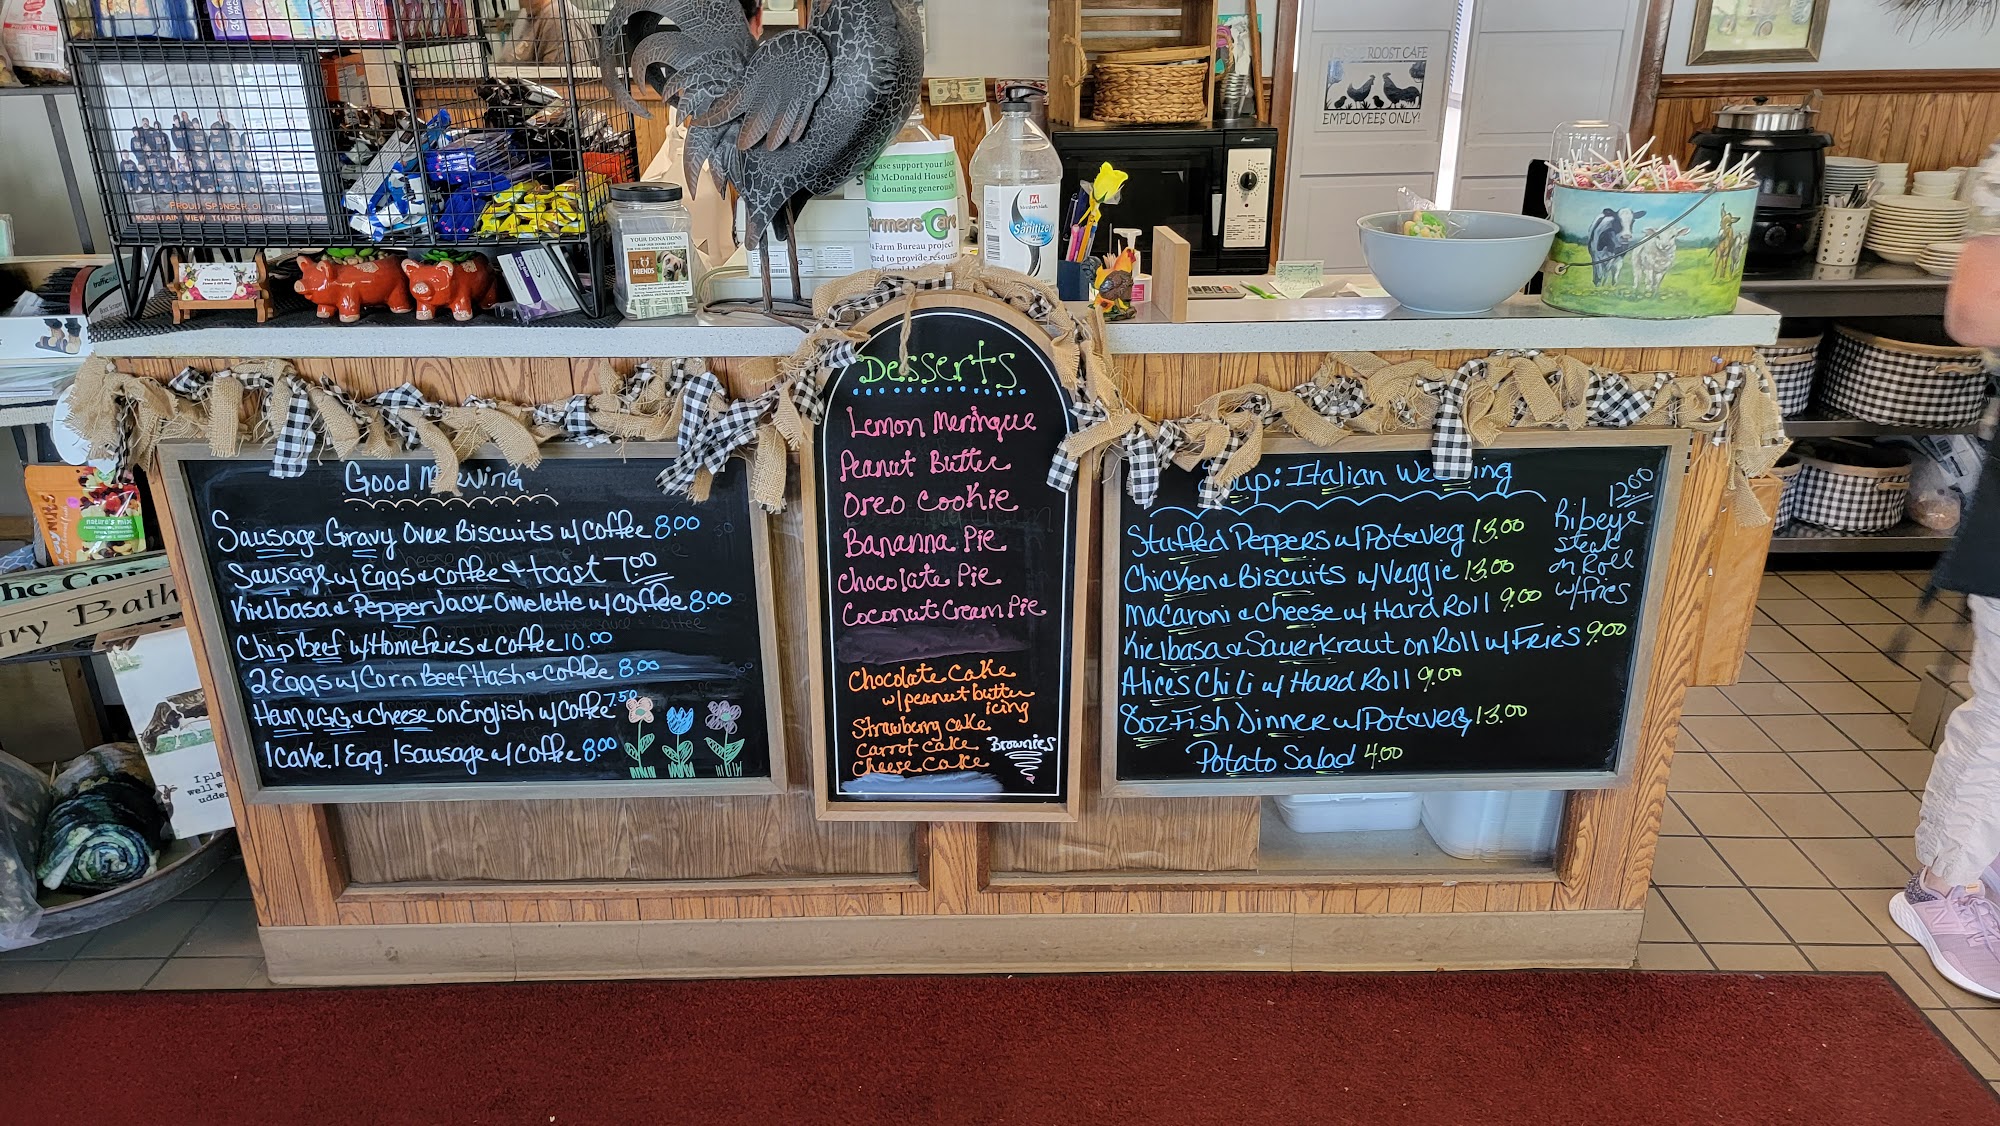 PROUD SPONSOR OF THE
MOUNTAIN VIEW YOUTH WRESTLING CLUB
YOUR DONATIONS
FRIENDS
Please support your local
Ronald McDonald House Ch
by donating generously
Farmers Care
a Farm Bureau project
Sanitizer
ROOST CAFE
EMPLOYEES ONLY!
nature's mix
The Cou
try Bath
I pla
well w
udder
Good Morning
Sausage Gravy Over Biscuits w/ Coffee 8.00
Sausage w/ Eggs & Coffee & toast 7.00
Kielbasa & Pepper Jack Omelette w/ Coffee 8.00
Chip Beef w/ Homefries & Coffee 10.00
2 Eggs w/ Corn Beef Hash & Coffee 8.00
Ham, egg & Cheese on English w/ Coffee 7.50
1 Cake, 1 Egg, 1 Sausage w/ Coffee 8.00
Desserts
Lemon Meringue
Peanut Butter
Oreo Cookie
Bananna Pie
Chocolate Pie
Coconut Cream Pie
Chocolate Cake
w/ peanut butter
icing
Strawberry Cake
Carrot Cake
Cheese Cake
Brownies
Soup: Italian Wedding
Stuffed Peppers w/ Pot & Veg 13.00
Chicken & Biscuits w/ Veggie 13.00
Macaroni & Cheese w/ Hard Roll 9.00
Kielbasa & Sauerkraut on Roll w/ Fries 9.00
Alice's Chili w/ Hard Roll 9.00
8oz Fish Dinner w/ Pot & Veg 13.00
Potato Salad 4.00
12.00
Ribeye
steak
on Roll
w/ fries